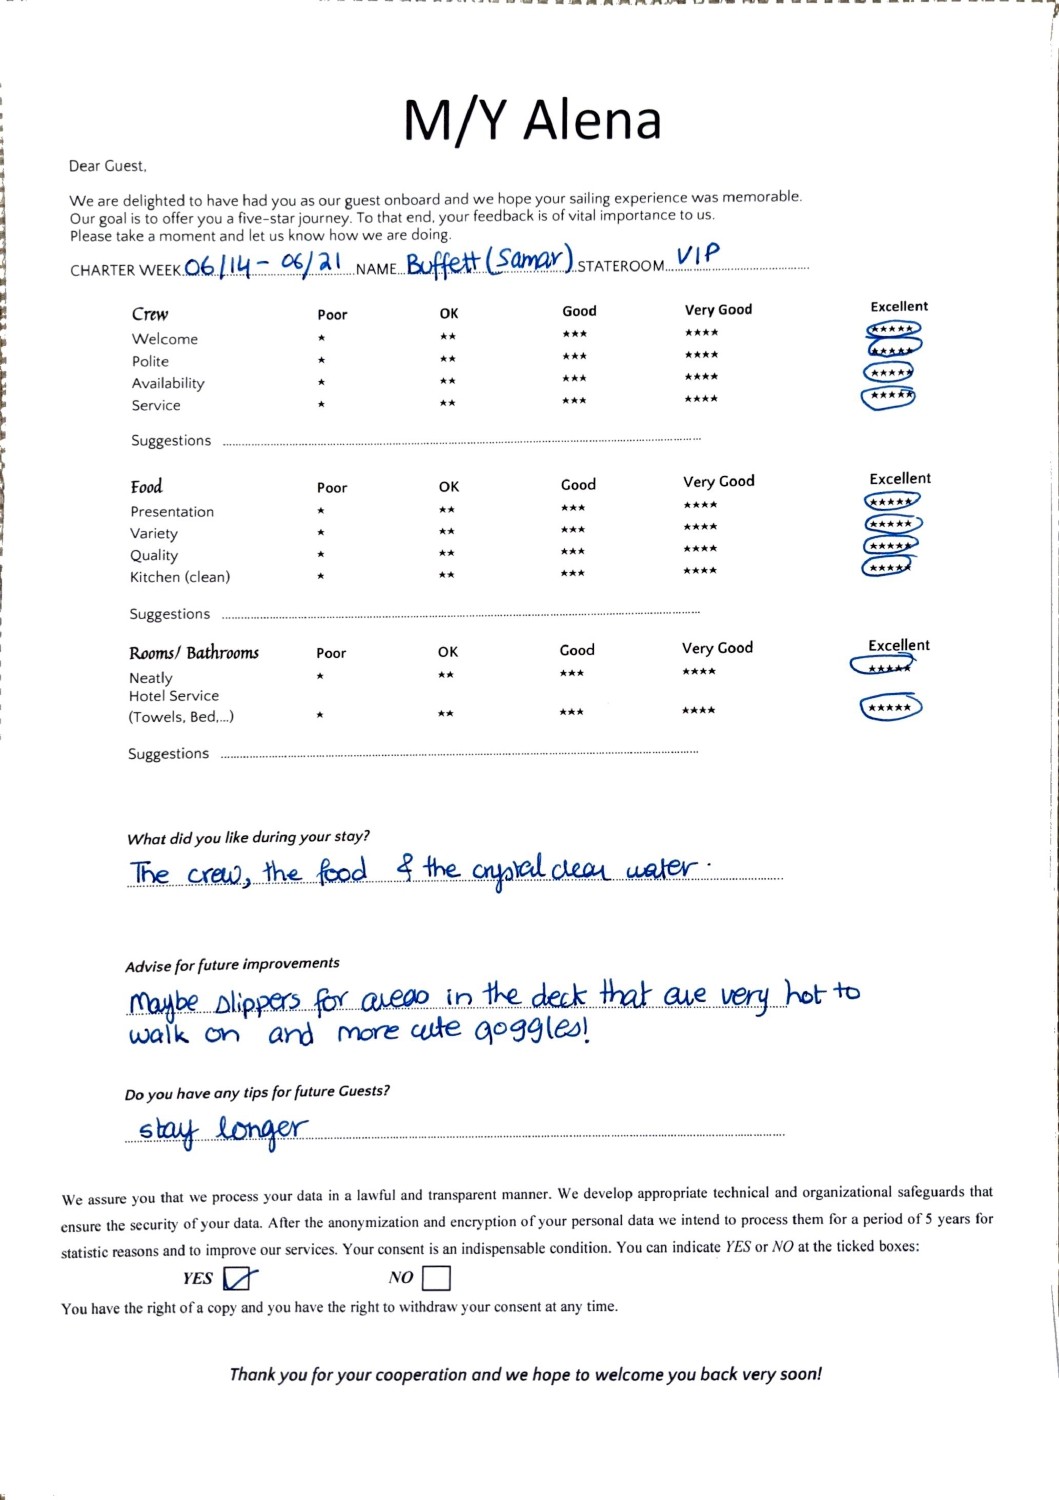 M/Y Alena
Dear Guest,
We are delighted to have had you as our guest onboard and we hope your sailing experience was memorable.
Our goal is to offer you a five-star journey. To that end, your feedback is of vital importance to us.
Please take a moment and let us know how we are doing.
CHARTER WEEK 06/14 - 06/21 NAME Buffett (Samar) STATEROOM VIP
Crew Poor OK Good Very Good Excellent
Welcome ★ ★★ ★★★ ★★★★ ★★★★★
Polite ★ ★★ ★★★ ★★★★ ★★★★★
Availability ★ ★★ ★★★ ★★★★ ★★★★★
Service ★ ★★ ★★★ ★★★★ ★★★★★
Suggestions
Food Poor OK Good Very Good Excellent
Presentation ★ ★★ ★★★ ★★★★ ★★★★★
Variety ★ ★★ ★★★ ★★★★ ★★★★★
Quality ★ ★★ ★★★ ★★★★ ★★★★★
Kitchen (clean) ★ ★★ ★★★ ★★★★ ★★★★★
Suggestions
Rooms/ Bathrooms Poor OK Good Very Good Excellent
Neatly ★ ★★ ★★★ ★★★★ ★★★★★
Hotel Service
(Towels, Bed,...) ★ ★★ ★★★ ★★★★ ★★★★★
Suggestions
What did you like during your stay?
The crew, the food & the crystal clear water.
Advise for future improvements
Maybe slippers for areas in the deck that are very hot to
walk on and more cute goggles!
Do you have any tips for future Guests?
stay longer
We assure you that we process your data in a lawful and transparent manner. We develop appropriate technical and organizational safeguards that
ensure the security of your data. After the anonymization and encryption of your personal data we intend to process them for a period of 5 years for
statistic reasons and to improve our services. Your consent is an indispensable condition. You can indicate YES or NO at the ticked boxes:
YES NO
You have the right of a copy and you have the right to withdraw your consent at any time.
Thank you for your cooperation and we hope to welcome you back very soon!